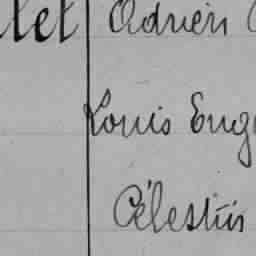 llet Adrien
Louis Eug
Célestin